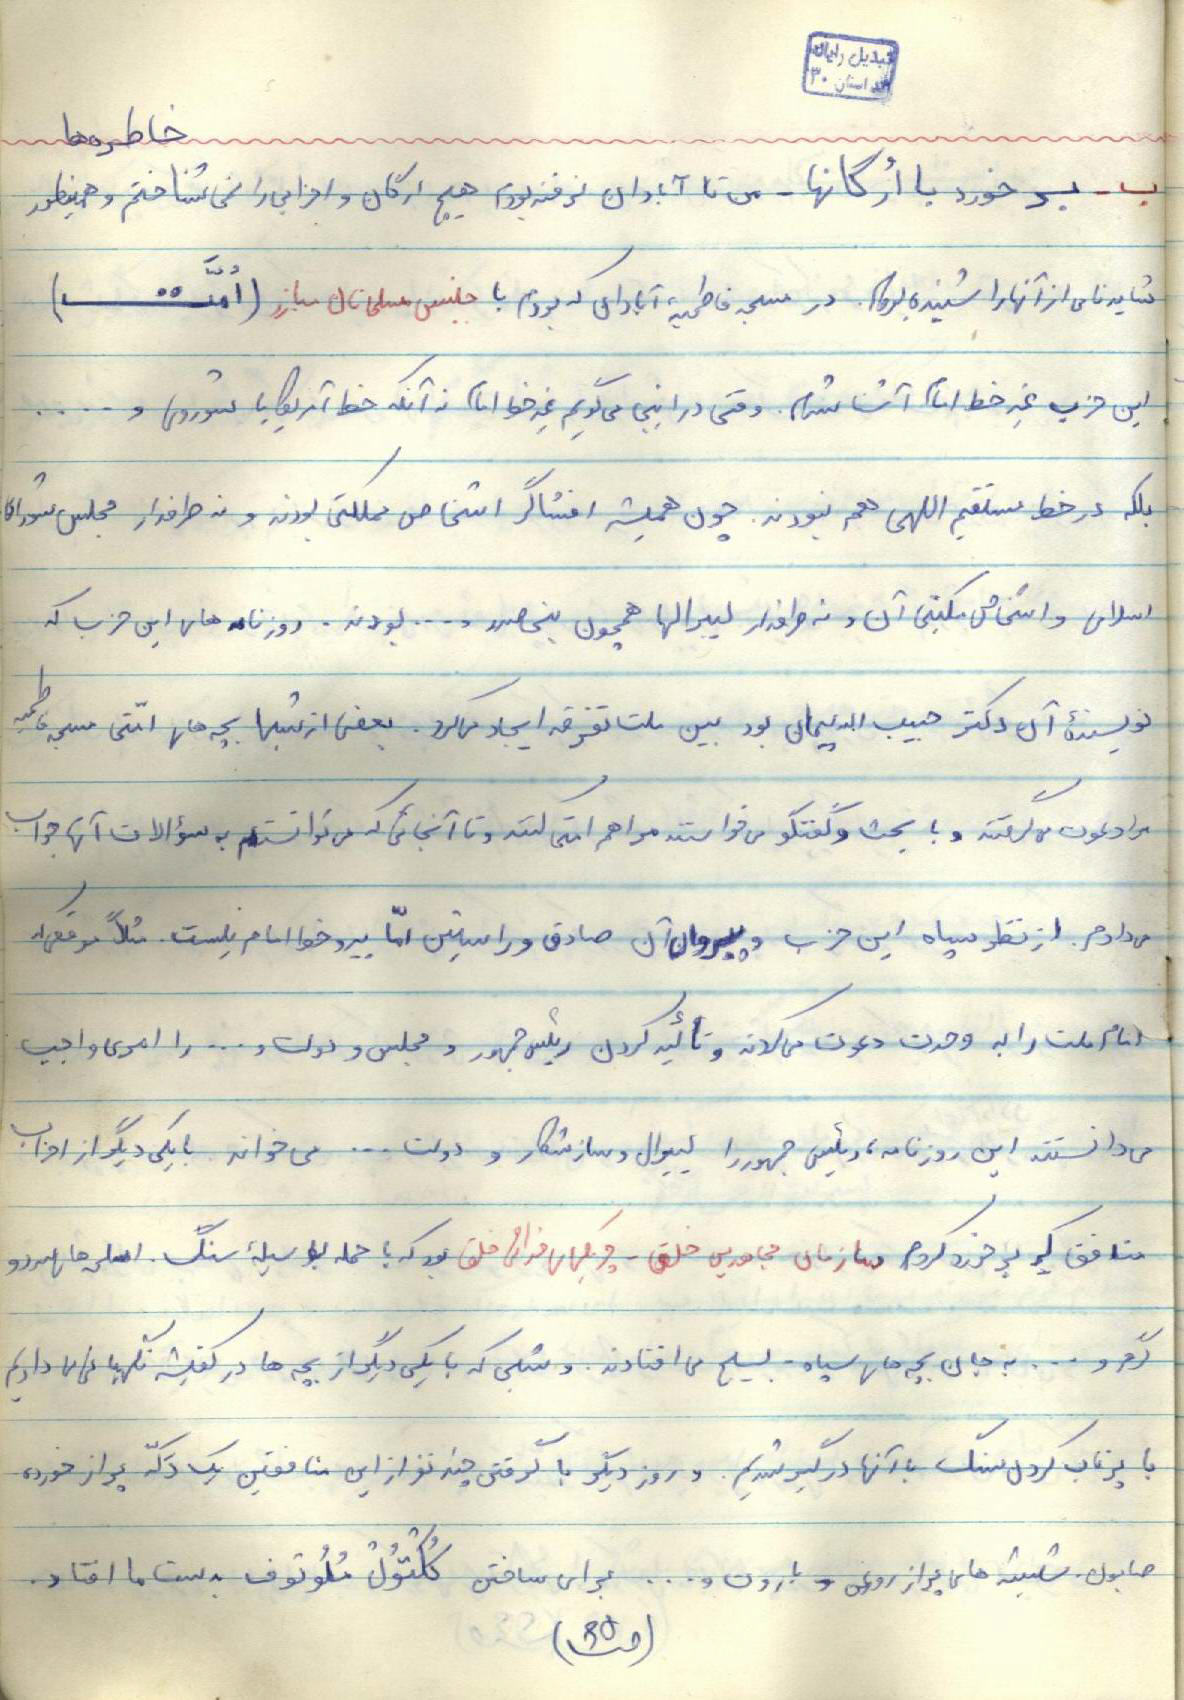 تبدیل رایانه
استان ۳۰
خاطره‌ها
ب - برخورد با اُرگانها - من تا آبادان نرفته بودم هیچ ارگان و احزابی را نمی شناختم و همینطور
شاید نامی از آنها را شنیده بودم. در مسجد فاطمیه آبادان که بودم با جنبش مسلمانان مبارز (اُمَّت)
این حزب غیر خط امام آشنا شدم. وقتی در اینجا می گویم غیر خط امام نه آنکه خط آمریکا یا شوروی و ....
بلکه در خط مستقیم اللهی هم نبودند. چون همیشه افشاگر اشخاص مملکتی بودند و نه طرفدار مجلس شورای
اسلامی و اشخاص مکتبی آن و نه طرفدار لیبرالها همچون بنی صدر و .... بودند. روزنامه های این حزب که
نویسندۀ آن دکتر حبیب الله پیمان بود بین ملت تفرقه ایجاد می کرد. بعضی از شبها بچه های امّتی مسجد فاطمیه
مرا دعوت می گرفتند و با بحث و گفتگو می خواستند مرا هم امتی کنند و تا آنجائی که می توانستم به سؤالات آنها جواب
می دادم. از نظر سپاه این حزب و پیروان آن صادق و راستین امّا پیرو خط امام نیست. مثلاً موقعی که
امام ملت را به وحدت دعوت می کردند و تأئید کردن رئیس جمهور و مجلس و دولت و .... را امری واجب
می دانستند این روزنامه، رئیس جمهور را لیبرال و سازشکار و دولت .... می خواند. با یکی دیگر از احزاب
منافق که برخورد کردم سازمان مجاهدین خلق - چریکهای فدائی خلق بود که با حمله بوسیلۀ سنگ. اسلحه های سرد و
گرم و .... به جان بچه های سپاه - بسیج می افتادند. و شبی که با یکی دیگر از بچه ها در کفیشه نگهبانی می دادیم
با پرتاب کردن سنگ با آنها درگیر شدیم. و روز دیگر با گرفتن چند نفر از این منافقین یک دَکّه پر از خورده
صابون. شیشه های پر از روغن و باروت و .... برای ساختن کُکْتوُلْ مُلُوتوف بدست ما افتاد.